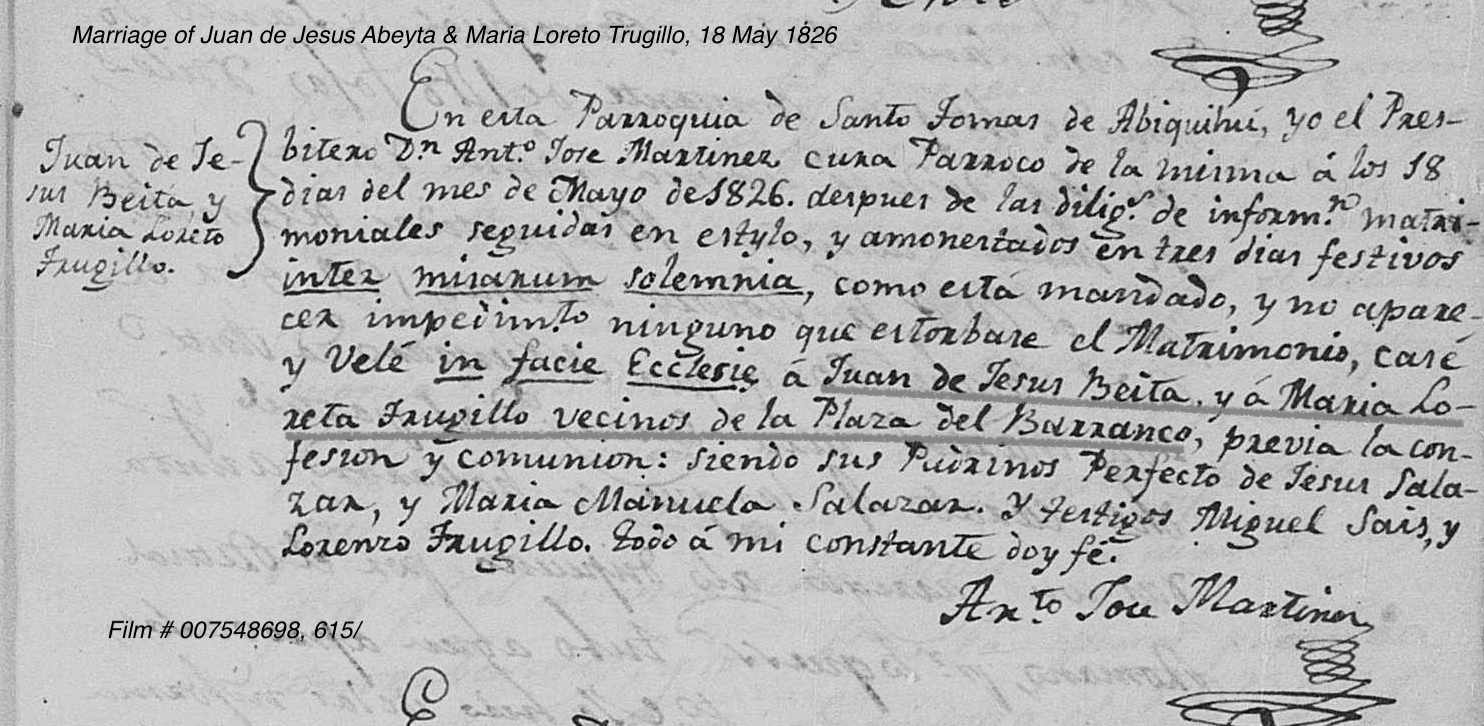 Marriage of Juan de Jesus Abeyta & Maria Loreto Trugillo, 18 May 1826
Juan de Je-
sus Beita, y
Maria Loreto
Trugillo.
En esta Parroquia de Santo Tomas de Abiquihú, yo el Pres-
bitero Dn Anto. Jose Martinez cura Parroco de la misma á los 18
dias del mes de Mayo de 1826. despues de las diligs. de informn. matri-
moniales seguidas en estylo, y amonestados en tres dias festivos
inter misarum solemnia, como está mandado, y no apare-
cer impedimto. ninguno que estorbare el Matrimonio, casé
y Velé in facie Ecclesie á Juan de Jesus Beita. y á Maria Lo-
reta Trugillo vecinos de la Plaza del Barranco, previa la con-
fesion y comunion: siendo sus Padrinos Perfecto de Jesus Sala-
zar, y Maria Manuela Salazar. Y testigos Miguel Sais, y
Lorenzo Trugillo. Todo á mi constante doy fé.
Anto. Jose Martinez
Film # 007548698, 615/